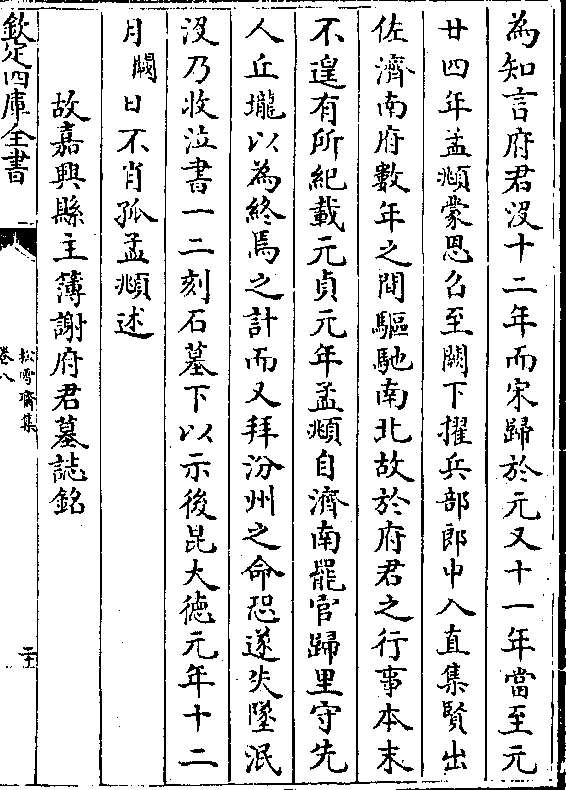 為知言府君沒十二年而宋歸於元又十一年當至元
廿四年孟頫蒙恩召至闕下擢兵部郎中入直集賢出
佐濟南府數年之間驅馳南北故於府君之行事本末
不遑有所紀載元貞元年孟頫自濟南罷官歸里守先
人丘壠以為終焉之計而又拜汾州之命恐遂失墜泯
沒乃收泣書一二刻石墓下以示後昆大德元年十二
月闕日不肖孤孟頫述
故嘉興縣主簿謝府君墓誌銘
欽定四庫全書
松雪齋集
卷八
二十